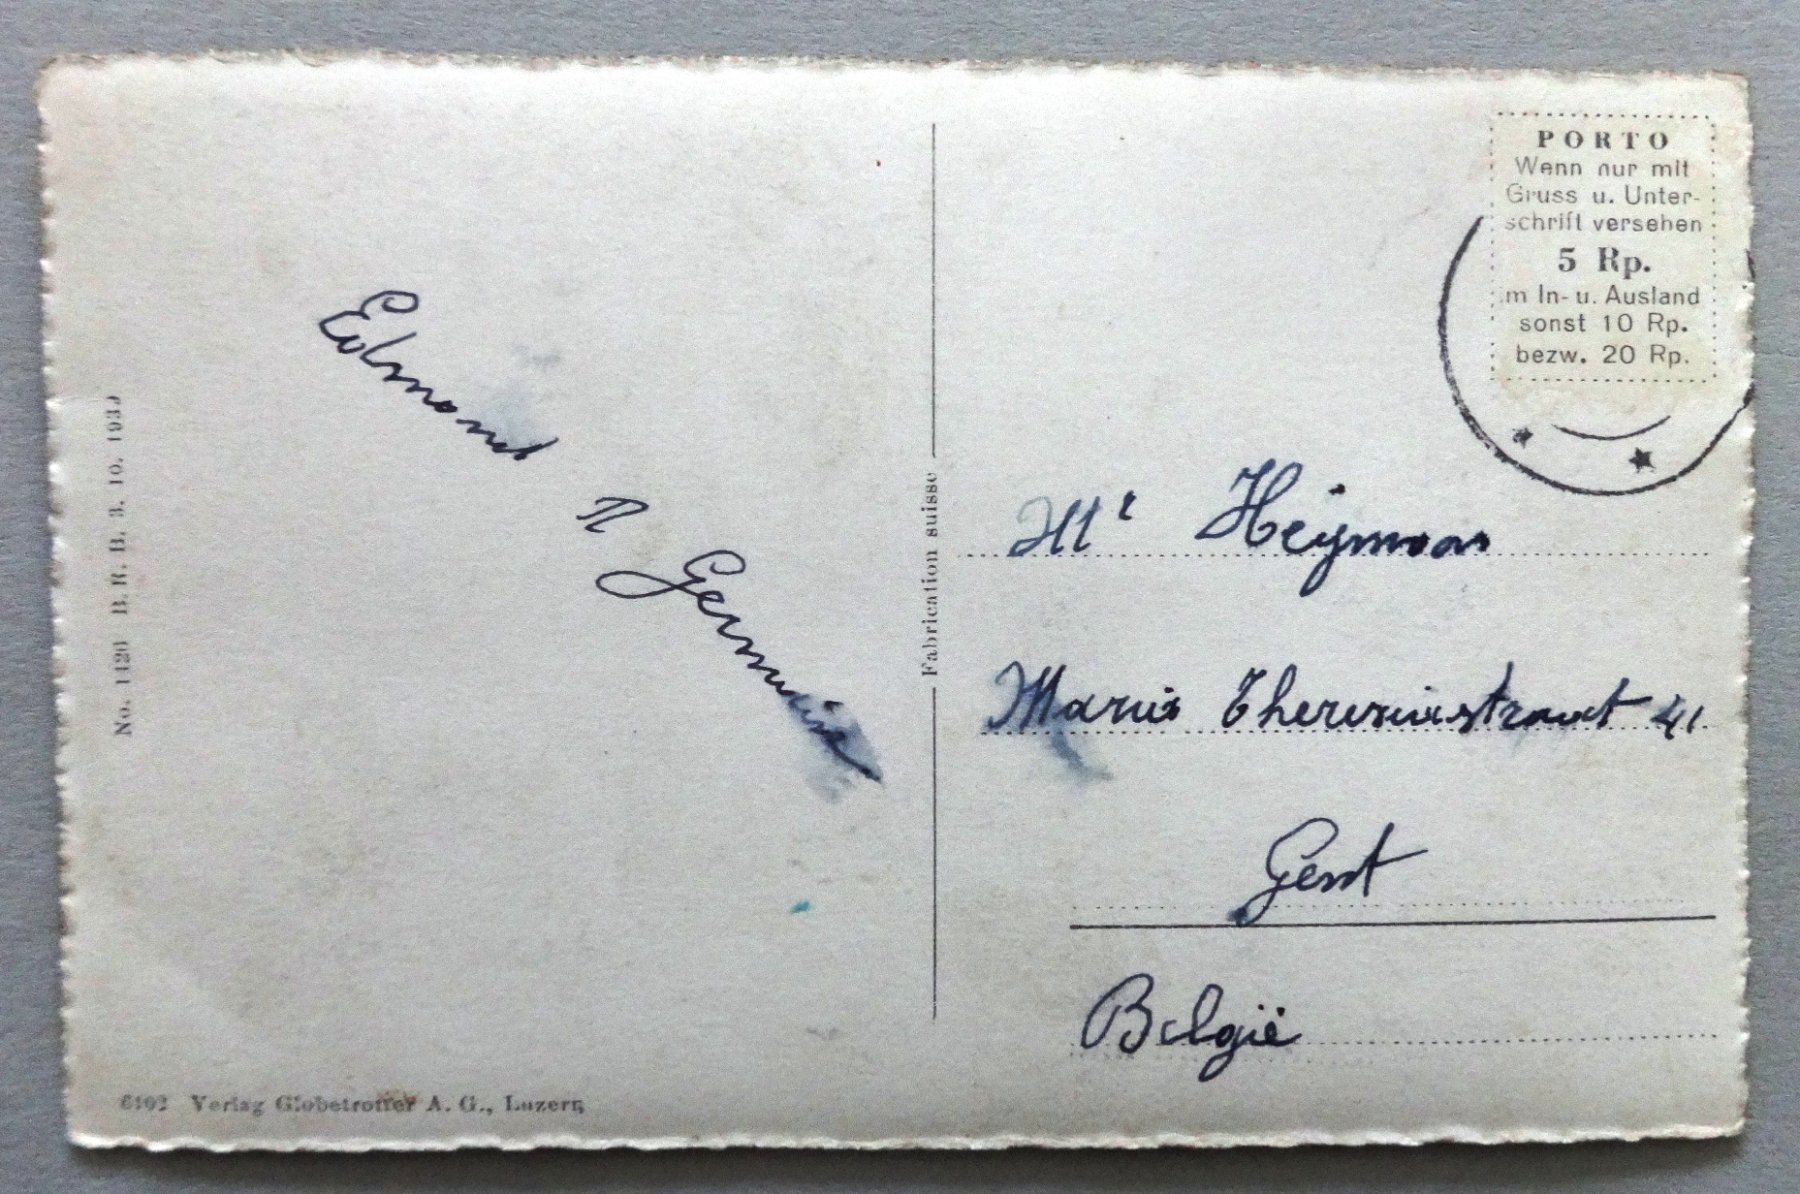 PORTO
Wenn nur mit
Gruss u. Unter-
schrift versehen
5 Rp.
im In- u. Ausland
sonst 10 Rp.
bezw. 20 Rp.
Edmond
Germaine
No. 1420 B. R. B. 3. 10. 1939
Fabrication suisse
Mr Heymans
Maria Theresiastraat 41
Gent
België
6102 Verlag Globetrotter A. G., Luzern